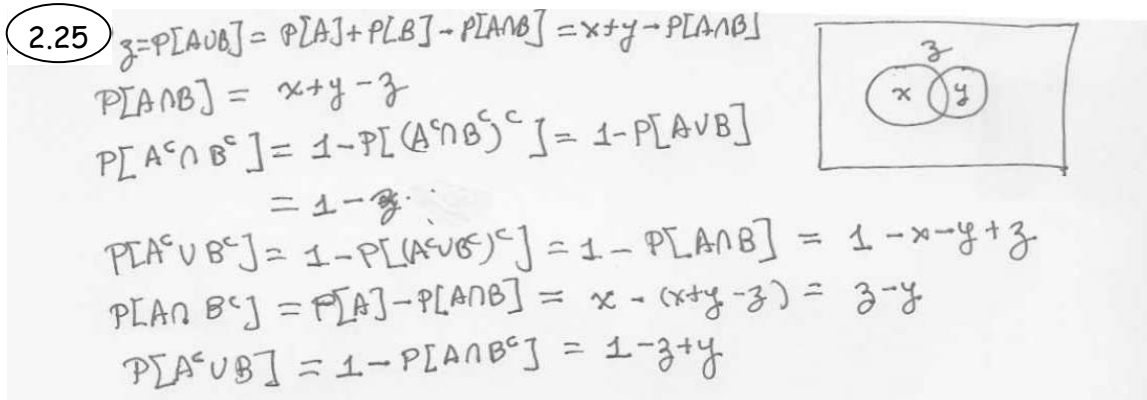 2.25 z=P[A∪B]= P[A]+P[B]-P[A∩B] =x+y-P[A∩B]
P[A∩B] = x+y-z
P[Aᶜ∩Bᶜ]= 1-P[(Aᶜ∩Bᶜ)ᶜ]= 1-P[A∪B]
= 1-z
P[Aᶜ∪Bᶜ]= 1-P[(Aᶜ∪Bᶜ)ᶜ]=1-P[A∩B] = 1-x-y+z
P[A∩Bᶜ] = P[A]-P[A∩B] = x-(x+y-z) = z-y
P[Aᶜ∪B] = 1-P[A∩Bᶜ] = 1-z+y
z
x y